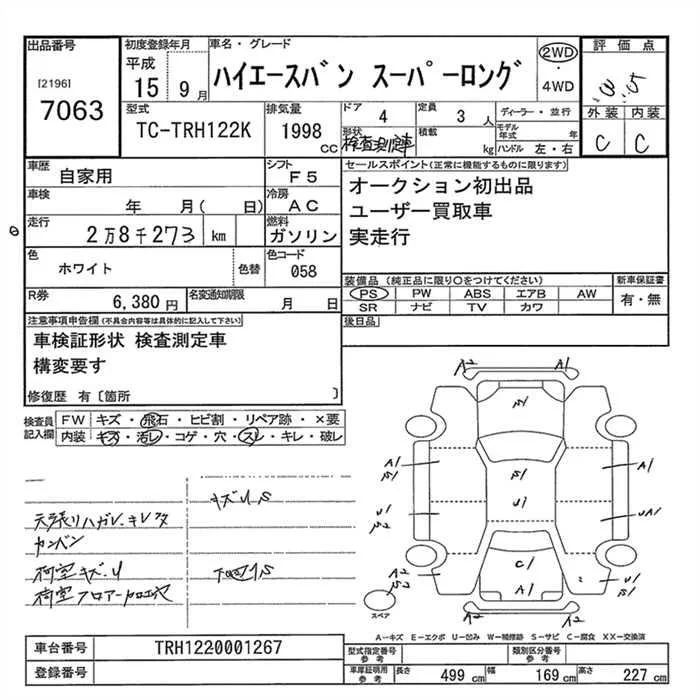 出品番号
[2196]
7063
初度登録年月
平成
15 9月
車名・グレード
ハイエースバン スーパーロング
2WD
・
4WD
評価点
外装 内装
C C
型式
TC-TRH122K
排気量
1998 cc
ドア
4
定員
3人
形状
検査測定車
積載
kg
ディーラー・並行
モデル年式 年
ハンドル 左・右
車歴
自家用
シフト
F5
車検
年 月( 日)
冷房
AC
走行
2万8千273 km
燃料
ガソリン
色
ホワイト
色替
色コード
058
R券
6,380円
名変通知期限
月 日
セールスポイント(正常に機能するものに限ります)
オークション初出品
ユーザー買取車
実走行
装備品(純正品に限り○をつけてください)
PS PW ABS エアB AW
SR ナビ TV カワ
新車保証書
有・無
後日品
注意事項申告欄(不具合内容等は具体的に記入して下さい)
車検証形状 検査測定車
構変要す
修復歴 有〔箇所 〕
検査員記入欄
FW キズ・飛石・ヒビ割・リペア跡・×要
内装 キズ・汚レ・コゲ・穴・スレ・キレ・破レ
キズU,S
カンバン
荷室キズ.U
A2 A1
S1
A1 S1
S1
U1
U1 S2
UA1
A2 S2
C1
A1
U1 S2
A2 A2
スペア
A－キズ E－エクボ U－凹み W－補修跡 S－サビ C－腐食 XX－交換済
車台番号
TRH1220001267
登録番号
型式指定番号
参考
類別区分番号
参考
車庫証明用
参考
長さ 499 cm 幅 169 cm 高さ 227 cm